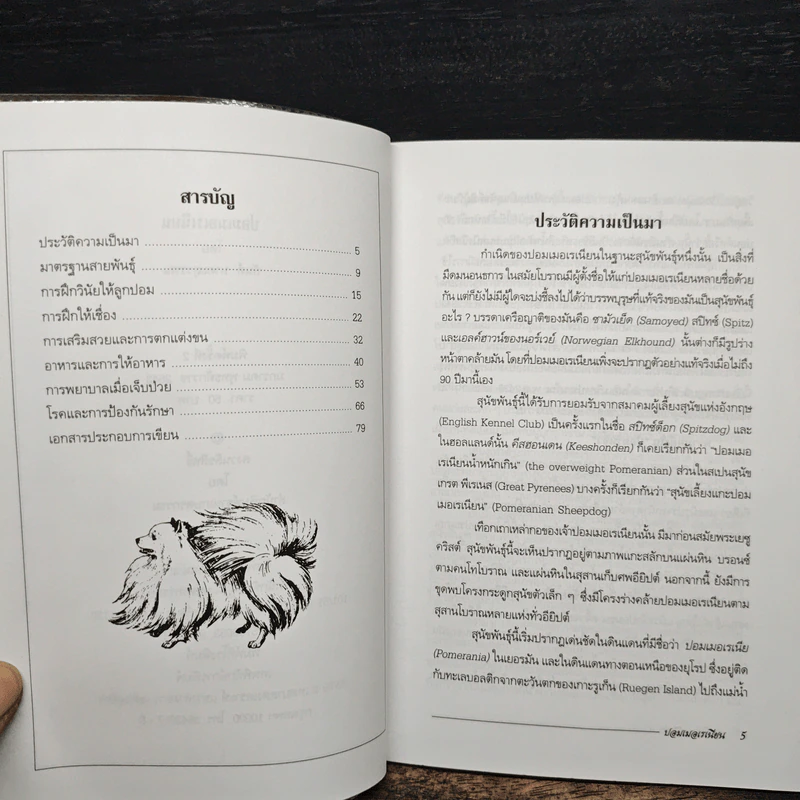 สารบัญ
ประวัติความเป็นมา 5
มาตรฐานสายพันธุ์ 9
การฝึกวินัยให้ลูกปอม 15
การฝึกให้เชื่อง 22
การเสริมสวยและการตกแต่งขน 32
อาหารและการให้อาหาร 40
การพยาบาลเมื่อเจ็บป่วย 53
โรคและการป้องกันรักษา 66
เอกสารประกอบการเขียน 79
ประวัติความเป็นมา
กำเนิดของปอมเมอเรเนียนในฐานะสุนัขพันธุ์หนึ่งนั้น เป็นสิ่งที่
มืดมนอนธการ ในสมัยโบราณมีผู้ตั้งชื่อให้แก่ปอมเมอเรเนียนหลายชื่อด้วย
กัน แต่ก็ยังไม่มีผู้ใดจะบ่งชี้ลงไปได้ว่าบรรพบุรุษที่แท้จริงของมันเป็นสุนัขพันธุ์
อะไร ? บรรดาเครือญาติของมันคือ ซามัวเย็ด (Samoyed) สปิทซ์ (Spitz)
และเอลค์ฮาวน์ของนอร์เวย์ (Norwegian Elkhound) นั้นต่างก็มีรูปร่าง
หน้าตาคล้ายมัน โดยที่ปอมเมอเรเนียนเพิ่งจะปรากฏตัวอย่างแท้จริงเมื่อไม่ถึง
90 ปีมานี้เอง
สุนัขพันธุ์นี้ได้รับการยอมรับจากสมาคมผู้เลี้ยงสุนัขแห่งอังกฤษ
(English Kennel Club) เป็นครั้งแรกในชื่อ สปิทซ์ด็อก (Spitzdog) และ
ในฮอลแลนด์นั้น คีสฮอนเดน (Keeshonden) ก็เคยเรียกกันว่า "ปอมเมอ
เรเนียนน้ำหนักเกิน" (the overweight Pomeranian) ส่วนในสเปนสุนัข
เกรต พีเรเนส (Great Pyrenees) บางครั้งก็เรียกกันว่า "สุนัขเลี้ยงแกะปอม
เมอเรเนียน" (Pomeranian Sheepdog)
เทือกเถาเหล่ากอของเจ้าปอมเมอเรเนียนนั้น มีมาก่อนสมัยพระเยซู
คริสต์ สุนัขพันธุ์นี้จะเห็นปรากฏอยู่ตามภาพแกะสลักบนแผ่นหิน บรอนซ์
ตามคนโทโบราณ และแผ่นหินในสุสานเก็บศพอียิปต์ นอกจากนี้ ยังมีการ
ขุดพบโครงกระดูกสุนัขตัวเล็ก ๆ ซึ่งมีโครงร่างคล้ายปอมเมอเรเนียนตาม
สุสานโบราณหลายแห่งทั่วอียิปต์
สุนัขพันธุ์นี้เริ่มปรากฏเด่นชัดในดินแดนที่มีชื่อว่า ปอมเมอเรเนีย
(Pomerania) ในเยอรมัน และในดินแดนทางตอนเหนือของยุโรป ซึ่งอยู่ติด
กับทะเลบอลติกจากตะวันตกของเกาะรูเก็น (Ruegen Island) ไปถึงแม่น้ำ
ปอมเมอเรเนียน 5